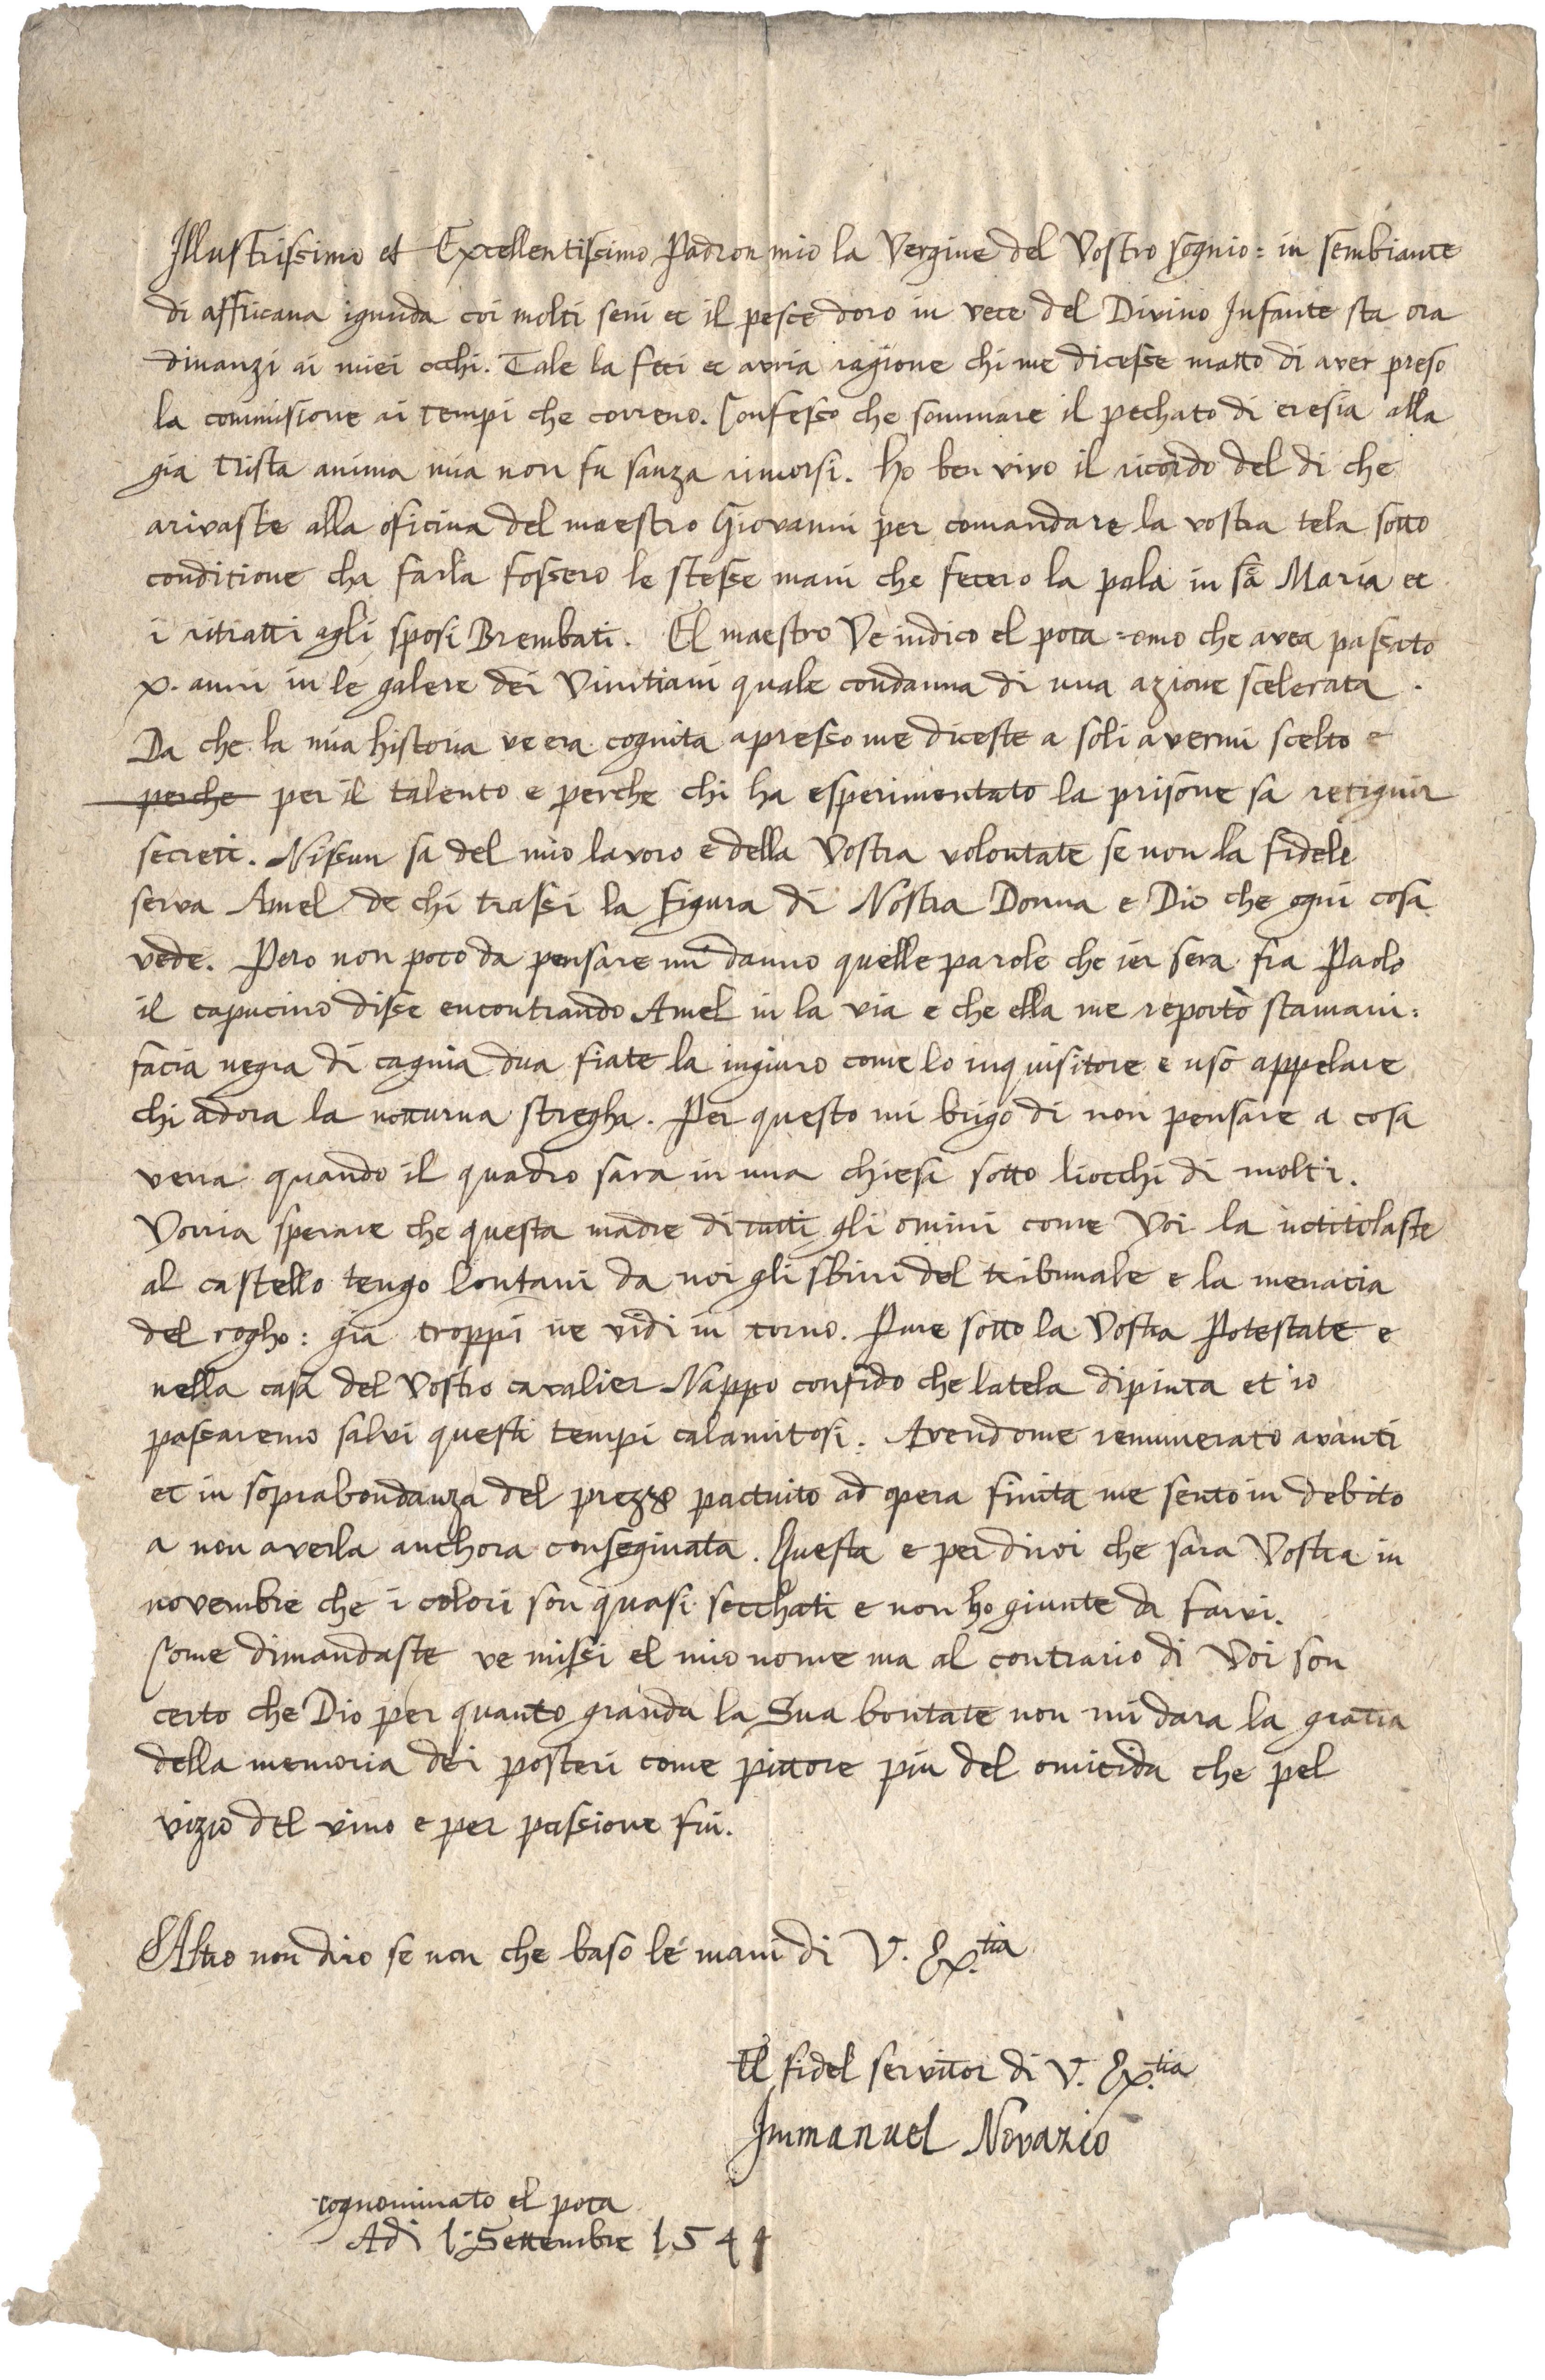 Illustrissimo et Excellentissimo Padron mio la Vergine del Vostro sognio: in sembiante
di affricana ignuda coi molti seni et il pesce doro in vece del Divino Infante sta ora
dinanzi ai miei occhi. Tale la feci et avria ragione chi me dicesse matto di aver preso
la commisione ai tempi che correno. Confesso che sommare il pechato di eresia alla
gia trista anima mia non fu sanza rimorsi. Ho ben vivo il ricordo del di che
arivaste alla oficina del maestro Giovanni per comandare la vostra tela sotto
conditione cha farla fossero le stesse mani che fecero la pala in sã Maria et
i ritratti agli sposi Brembati. El maestro Ve indico el pota : omo che avea passato
x. anni in le galere dei Vinitiani quale condanna di una azione scelerata.
Da che la mia historia ve era cognita apresso me diceste a soli avermi scelto e
perche per il talento e perche chi ha esperimentato la prisone sa retignir
secreti. Nissun sa del mio lavoro e della Vostra volontate se non la fidele
serva Amel de chi trassi la figura di Nostra Donna e Dio che ogni cosa
vede. Pero non poco da pensare mi danno quelle parole che ier sera fra Paolo
il capucino disse encontrando Amel in la via e che ella me reportò stamani:
facia negra di cagnia dua fiate la ingiuro come lo inquisitore e uso appelare
chi adora la notturna stregha. Per questo mi brigo di non pensare a cosa
verra quando il quadro sara in una chiesa sotto liocchi di molti.
Vorria sperare che questa madre di tutti gli omini come Voi la intitolaste
al castello tengo lontani da noi gli sbirri del tribunale e la menacia
del rogho: gia troppi ne vidi in torno. Pure sotto la Vostra Potestate e
nella casa del Vostro cavalier Nappo confido che latela dipinta et io
passaremo salvi questi tempi calamitosi. Avendome remunerato avanti
et in soprabondanza del prezzo pactuito ad opera finita me sento in debito
a non averla anchora conseginata. Questa e per dirvi che sara Vostra in
novembre che i colori son quasi secchati e non ho giunte da farvi.
Come dimandaste ve missi el mio nome ma al contrario di Voi son
certo che Dio per quanto granda la Sua bontate non mi dara la gratia
della memoria dei posteri come pittore piu del omicida che pel
vizio del vino e per passione fui.
Altro non diro se non che baso le mani di V. Ex.tia
El fidel servitor di V. Ex.tia
Immanuel Novazio
cognominato el pota
Adi 1. Settembre 1544